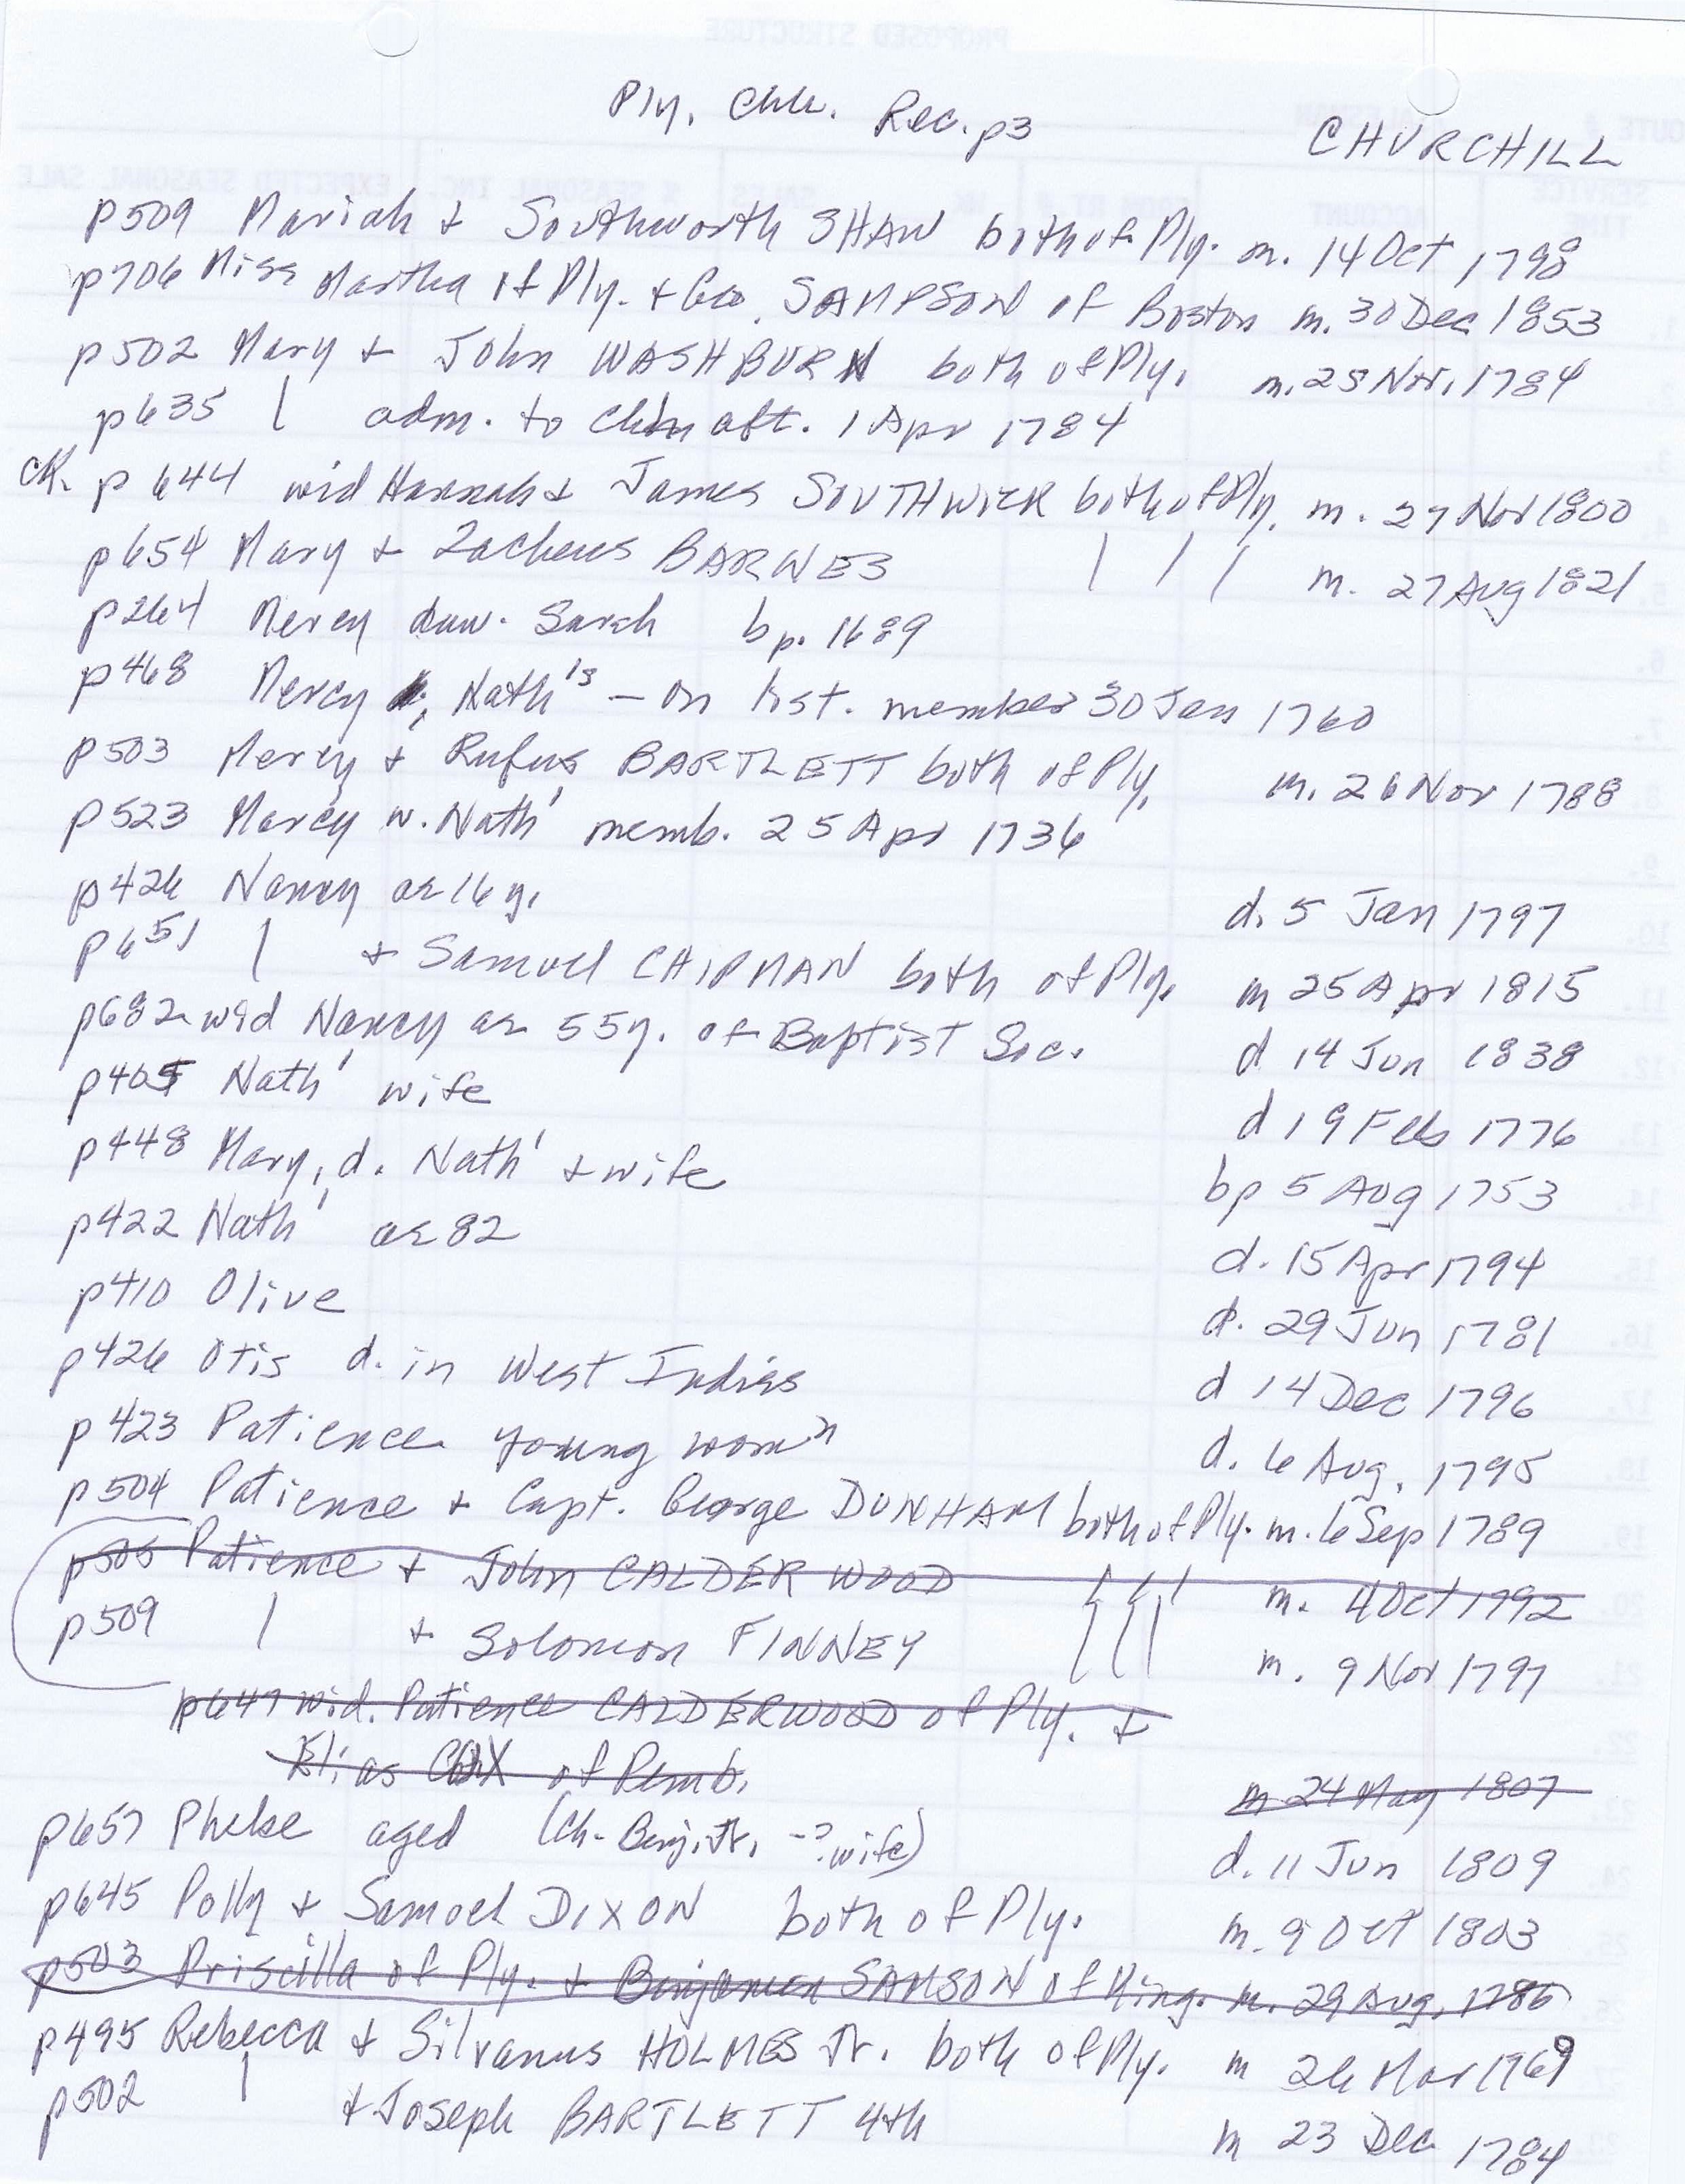 Ply. Chh. Rec. p3
CHURCHILL
p509 Mariah + Southworth SHAW both of Ply. m. 14 Oct 1798
p706 Miss Martha of Ply. + Geo. SAMPSON of Boston m. 30 Dec 1853
p502 Mary + John WASHBURN both of Ply. m. 25 Nov. 1784
p635 | adm. to Chh aft. 1 Apr 1784
ck. p644 wid Hannah + James SOUTHWICK both of Ply. m. 27 Nov 1800
p654 Mary + Zacheus BARNES | | | m. 27 Aug 1821
p264 Mercy dau. Sarah bp. 1689
p468 Mercy, Nath'ls – on list. member 30 Jan 1760
p503 Mercy + Rufus BARTLETT both of Ply. m. 26 Nov 1788
p523 Marcy w. Nath'l memb. 25 Apr 1736
p426 Nancy ae 16 y. d. 5 Jan 1797
p651 | + Samuel CHIPMAN both of Ply. m 25 Apr 1815
p682 wid Nancy ae 55y. of Baptist Soc. d 14 Jun 1838
p405 Nath'l wife d 19 Feb 1776
p448 Mary, d. Nath'l + wife bp 5 Aug 1753
p422 Nath'l ae 82 d. 15 Apr 1794
p410 Olive d. 29 Jun 1781
p426 Otis d. in West Indies d 14 Dec 1796
p423 Patience young wom'n d. 6 Aug. 1795
p504 Patience + Capt. George DUNHAM both of Ply. m. 6 Sep 1789
p506 Patience + John CALDERWOOD | | | m. 4 Oct 1792
p509 | + Solomon FINNEY | | | m. 9 Nov 1797
p647 wid. Patience CALDERWOOD of Ply. +
Elias COX of Pemb. m 24 May 1807
p657 Phebe aged (Ch- Benj. Jr. -? wife) d. 11 Jun 1809
p645 Polly + Samuel DIXON both of Ply. m. 9 Oct 1803
p503 Priscilla of Ply. + Benjamen SAMSON of King. m. 29 Aug. 1786
p495 Rebecca + Silvanus HOLMES Jr. both of Ply. m 26 Mar 1769
p502 | + Joseph BARTLETT 4th m 23 Dec 1784